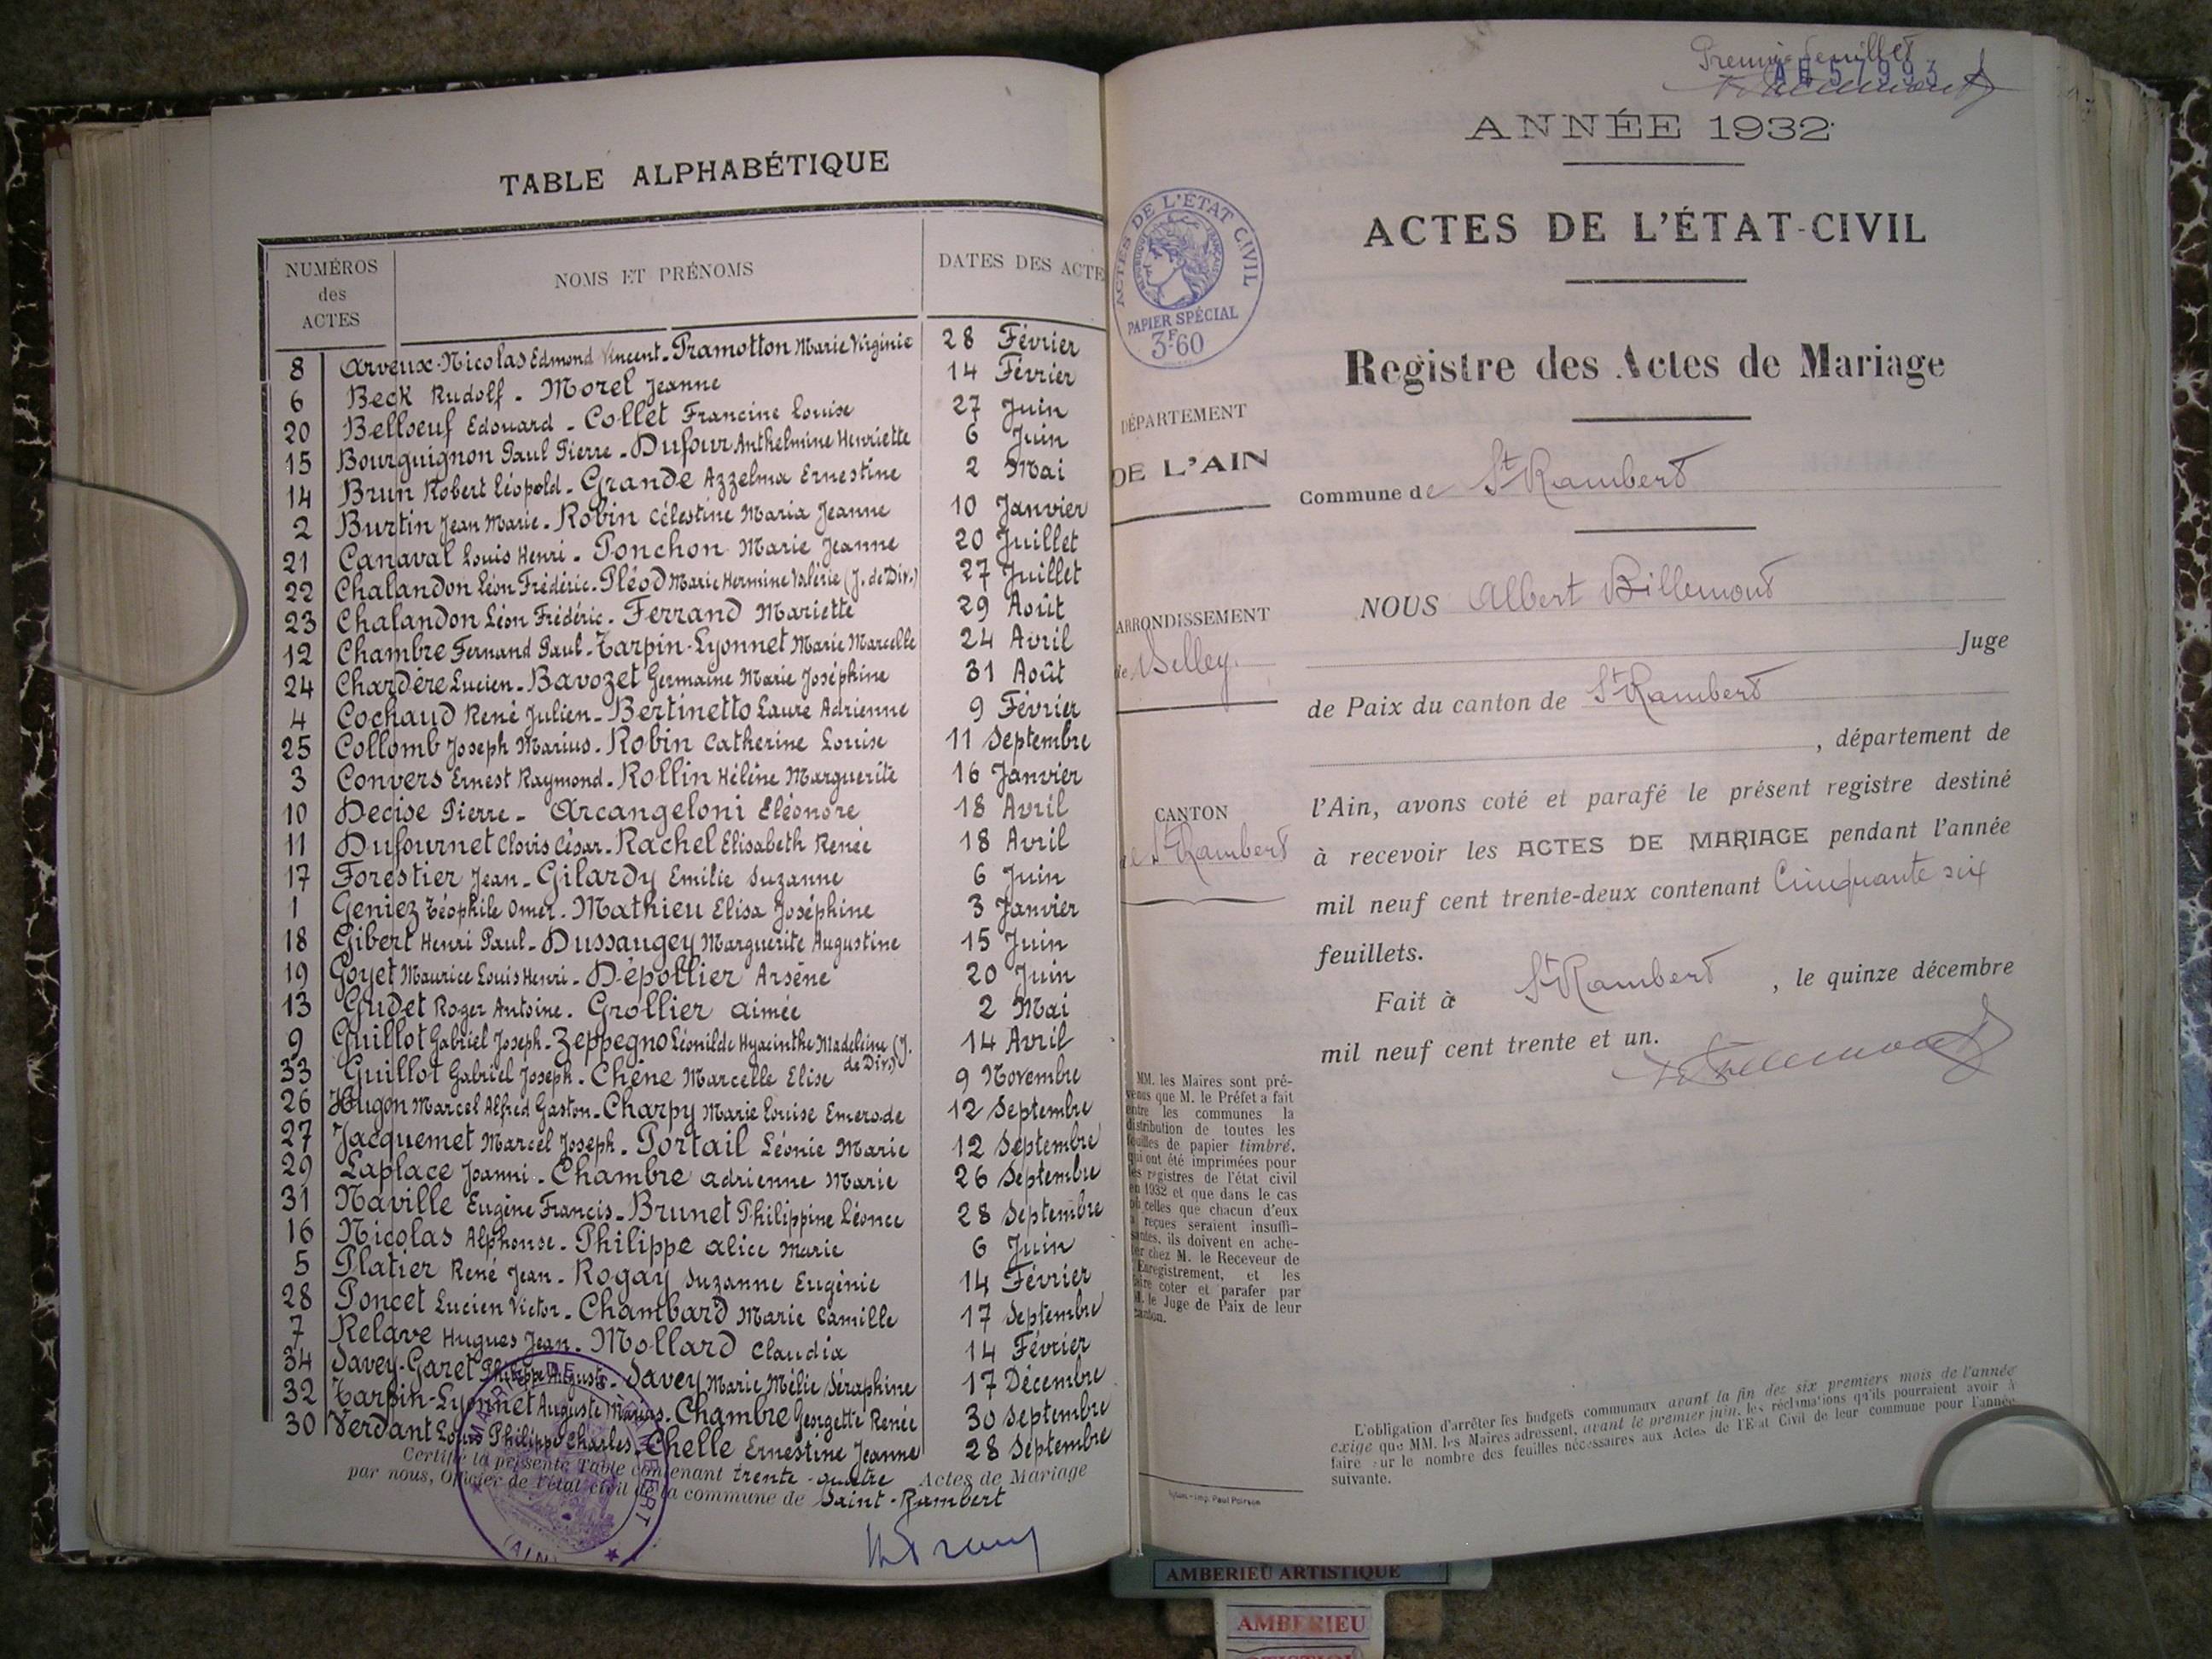 TABLE ALPHABÉTIQUE
NUMÉROS des ACTES
NOMS ET PRÉNOMS
DATES DES ACTE
8 Arveux-Nicolas Edmond Vincent - Pramotton Marie Virginie 28 Février
6 Beck Rudolf - Morel Jeanne 14 Février
20 Belloeuf Edouard - Collet Francine Louise 27 Juin
15 Bourguignon Paul Pierre - Dufour Anthelmine Henriette 6 Juin
14 Brun Robert Léopold - Grande Azzelma Ernestine 2 Mai
2 Burtin Jean Marie - Robin Célestine Maria Jeanne 10 Janvier
21 Canaval Louis Henri - Ponchon Marie Jeanne 20 Juillet
22 Chalandon Léon Frédéric - Pléod Marie Hermine Valérie (J. de Div.) 27 Juillet
23 Chalandon Léon Frédéric - Ferrand Mariette 29 Août
12 Chambre Fernand Paul - Tarpin-Lyonnet Marie Marcelle 24 Avril
24 Chardère Lucien - Bavozet Germaine Marie Joséphine 31 Août
4 Cochaud René Julien - Bertinetto Laure Adrienne 9 Février
25 Collomb Joseph Marius - Robin Catherine Louise 11 Septembre
3 Convers Ernest Raymond - Rollin Hélène Marguerite 16 Janvier
10 Decise Pierre - Arcangeloni Eléonore 18 Avril
11 Dufournet Clovis César - Rachel Elisabeth Renée 18 Avril
17 Forestier Jean - Gilardy Emilie Suzanne 6 Juin
1 Geniez Téophile Omer - Mathieu Elisa Joséphine 3 Janvier
18 Gibert Henri Paul - Dussaugey Marguerite Augustine 15 Juin
19 Goyet Maurice Louis Henri - Dépollier Arsène 20 Juin
13 Gudet Roger Antoine - Grollier Aimée 2 Mai
9 Guillot Gabriel Joseph - Zeppegno Léonilde Hyacinthe Madeleine (J. de Div.) 14 Avril
33 Guillot Gabriel Joseph - Chêne Marcelle Elise 9 Novembre
26 Hugon Marcel Alfred Gaston - Charpy Marie Louise Emerode 12 Septembre
27 Jacquemet Marcel Joseph - Portail Léonie Marie 12 Septembre
29 Laplace Joanni - Chambre Adrienne Marie 26 Septembre
31 Naville Eugène Francis - Brunet Philippine Léonce 28 Septembre
16 Nicolas Alphonse - Philippe Alice Marie 6 Juin
5 Platier René Jean - Rogay Suzanne Eugénie 14 Février
28 Poncet Lucien Victor - Chambard Marie Camille 17 Septembre
7 Relave Hugues Jean - Mollard Claudia 14 Février
34 Savey-Garet Philippe Auguste - Savey Marie Mélie Séraphine 17 Décembre
32 Tarpin-Lyonnet Auguste Marius - Chambre Georgette Renée 30 Septembre
30 Verdant Louis Philippe Charles - Chelle Ernestine Jeanne 28 Septembre
Certifié la présente Table contenant trente-quatre Actes de Mariage
par nous, Officier de l'état civil de la commune de Saint-Rambert
MAIRIE DE ST RAMBERT
(AIN)
Premier feuillet
AE57993
ANNÉE 1932
ACTES DE L'ÉTAT-CIVIL
Registre des Actes de Mariage
ACTES DE L'ÉTAT CIVIL
RÉPUBLIQUE FRANÇAISE
PAPIER SPÉCIAL
3F60
DÉPARTEMENT
DE L'AIN
ARRONDISSEMENT
de Belley
CANTON
de St Rambert
Commune de St Rambert
NOUS Albert Billemond
Juge
de Paix du canton de St Rambert
, département de
l'Ain, avons coté et parafé le présent registre destiné
à recevoir les ACTES DE MARIAGE pendant l'année
mil neuf cent trente-deux contenant Cinquante six
feuillets.
Fait à St Rambert , le quinze décembre
mil neuf cent trente et un.
MM. les Maires sont pré-
venus que M. le Préfet a fait
entre les communes la
distribution de toutes les
feuilles de papier timbré,
qui ont été imprimées pour
les registres de l'état civil
en 1932 et que dans le cas
où celles que chacun d'eux
a reçues seraient insuffi-
santes, ils doivent en ache-
ter chez M. le Receveur de
l'Enregistrement, et les
faire coter et parafer par
M. le Juge de Paix de leur
canton.
L'obligation d'arrêter les budgets communaux avant la fin des six premiers mois de l'année
exige que MM. les Maires adressent, avant le premier juin, les réclamations qu'ils pourraient avoir à
faire sur le nombre des feuilles nécessaires aux Actes de l'Etat Civil de leur commune pour l'année
suivante.
Imp. Paul Poirson
AMBERIEU ARTISTIQUE
AMBERIEU